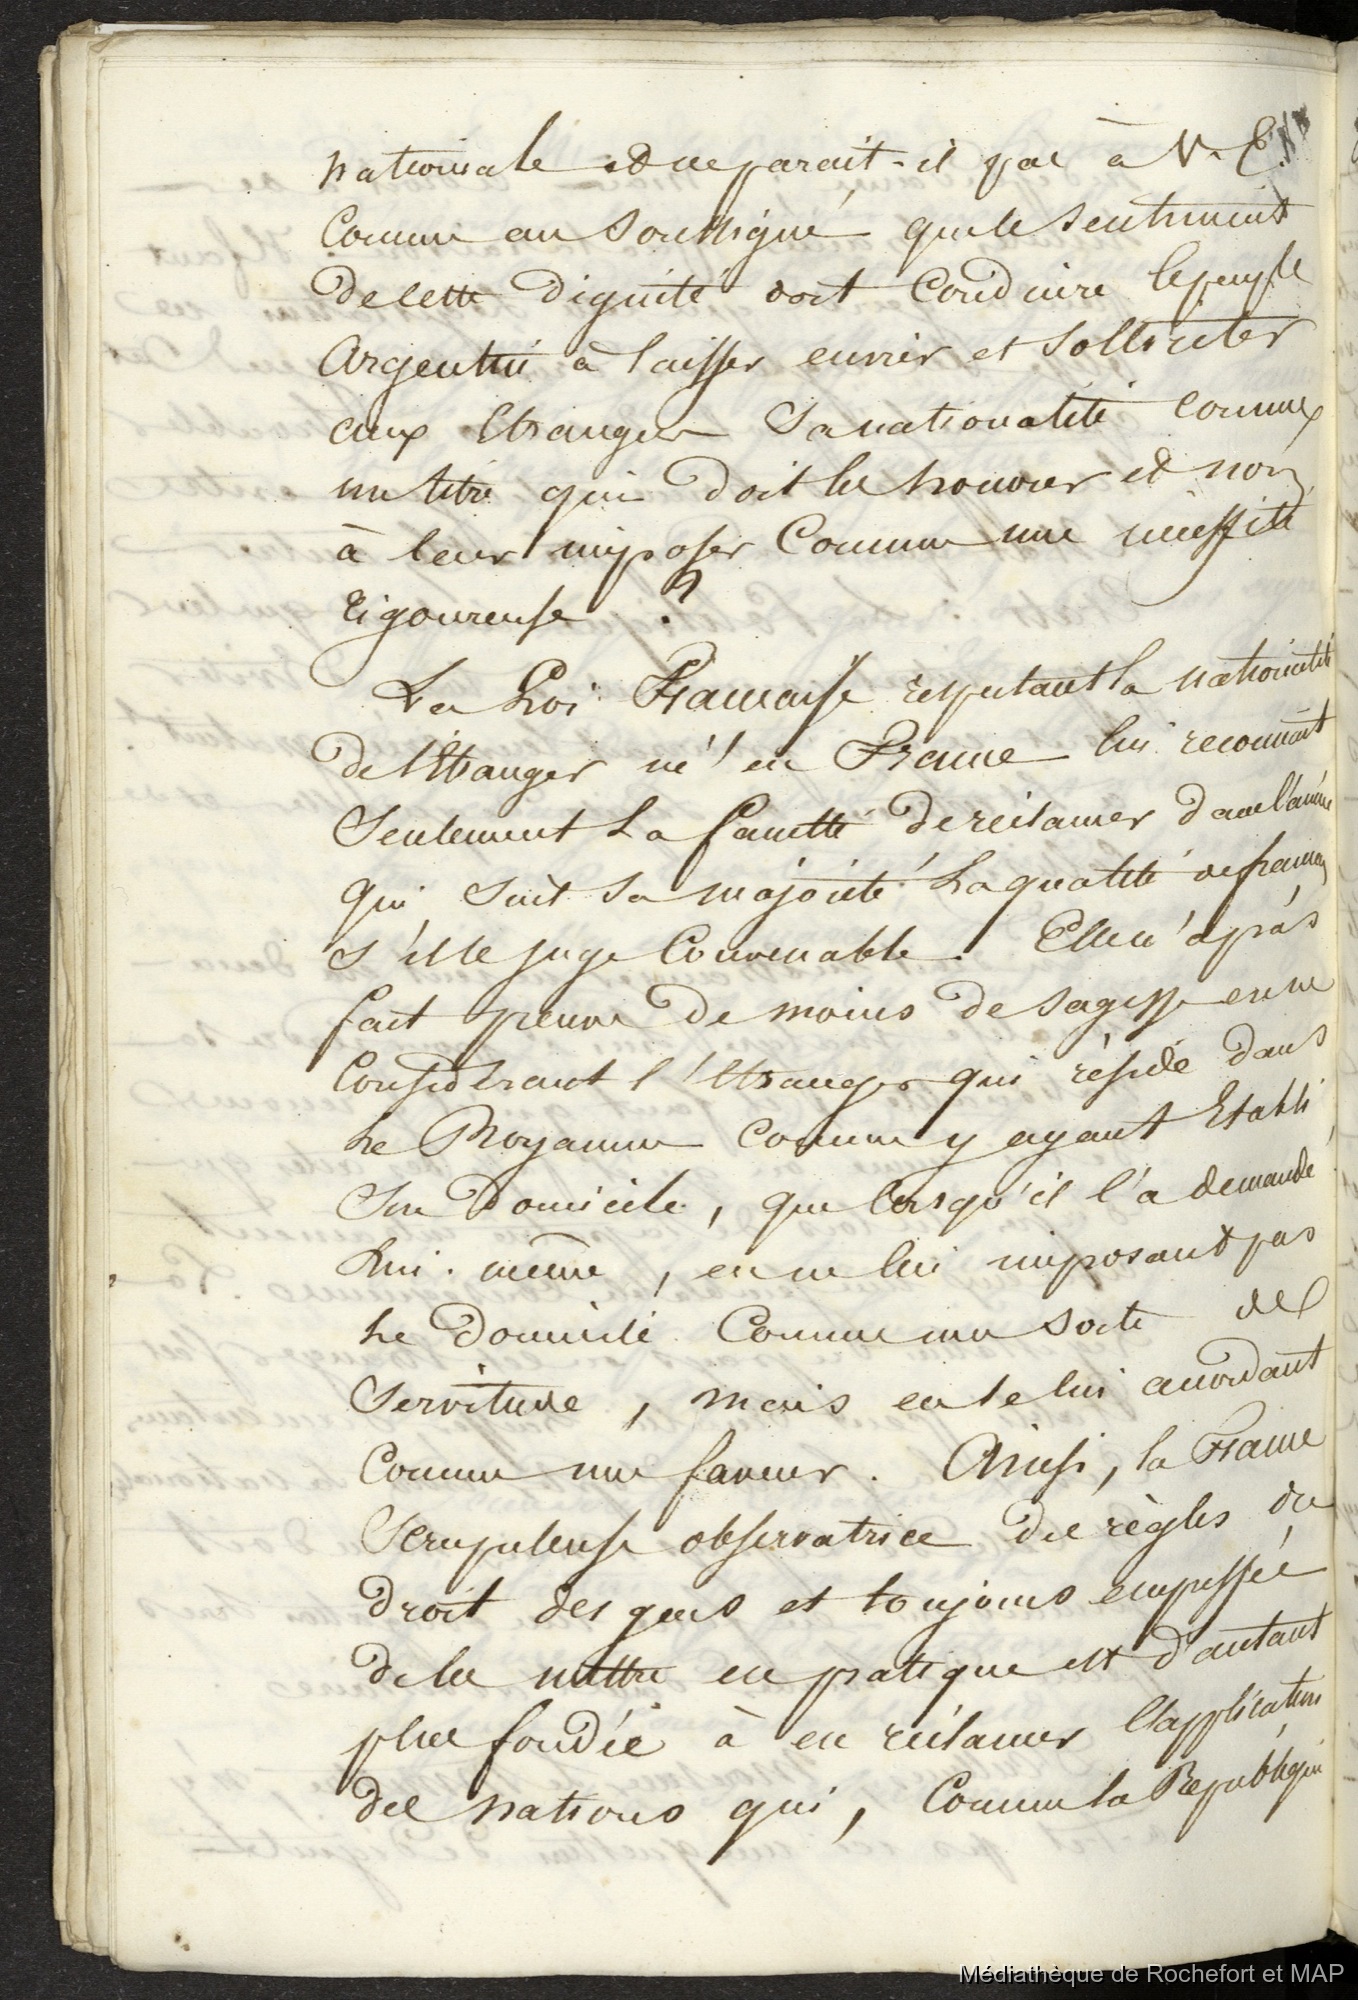 nationale et ne parait-il pas à V. E.
Comme au Soussigné que le sentiment
de cette dignité doit conduire le peuple
Argentin à laisser envier et solliciter
aux Etrangers sa nationalité comme
un titre qui doit les honorer et non
à leur imposer comme une nécessité
rigoureuse ?
La Loi Française respectant la nationalité
de l'Etranger né en France lui reconnait
seulement la faculté de réclamer dans l'année
qui suit sa majorité la qualité de français
s'il le juge convenable. Elle n'a pas
fait preuve de moins de sagesse en ne
Considérant l'Etranger qui réside dans
le Royaume comme y ayant Etabli
son Domicile, que lorsqu'il l'a demandé
lui-même, en ne lui imposant pas
le domicile Comme une sorte de
Servitude, mais en le lui accordant
comme une faveur. Ainsi, la France
Scrupuleuse observatrice des règles du
droit des gens et toujours empressée
de les mettre en pratique est d'autant
plus fondée à en réclamer l'application
des nations qui, Comme la République
Médiathèque de Rochefort et MAP